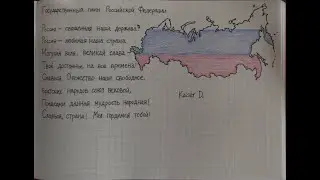 Государственный гимн Российской Федерации
Россия – священная наша держава,
Россия – любимая наша страна.
Могучая воля, великая слава –
Твоё достоянье на все времена!
Славься, Отечество наше свободное,
Братских народов союз вековой,
Предками данная мудрость народная!
Славься, страна! Мы гордимся тобой!